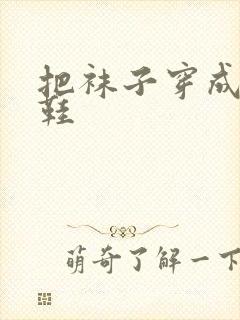 把袜子穿成
鞋
萌奇了解一下